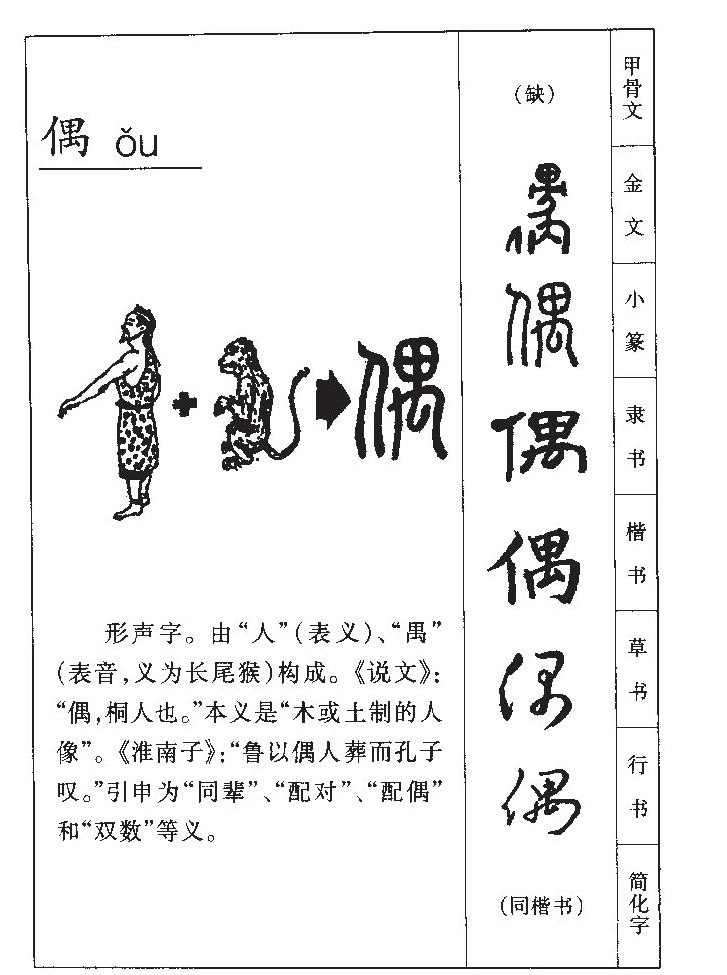 偶 ǒu
偶
形声字。由“人”(表义)、“禺”
(表音,义为长尾猴)构成。《说文》:
“偶,桐人也。”本义是“木或土制的人
像”。《淮南子》:“鲁以偶人葬而孔子
叹。”引申为“同辈”、“配对”、“配偶”
和“双数”等义。
(缺)
甲骨文
禺
金文
偶
小篆
偶
隶书
偶
楷书
偶
草书
偶
行书
(同楷书)
简化字